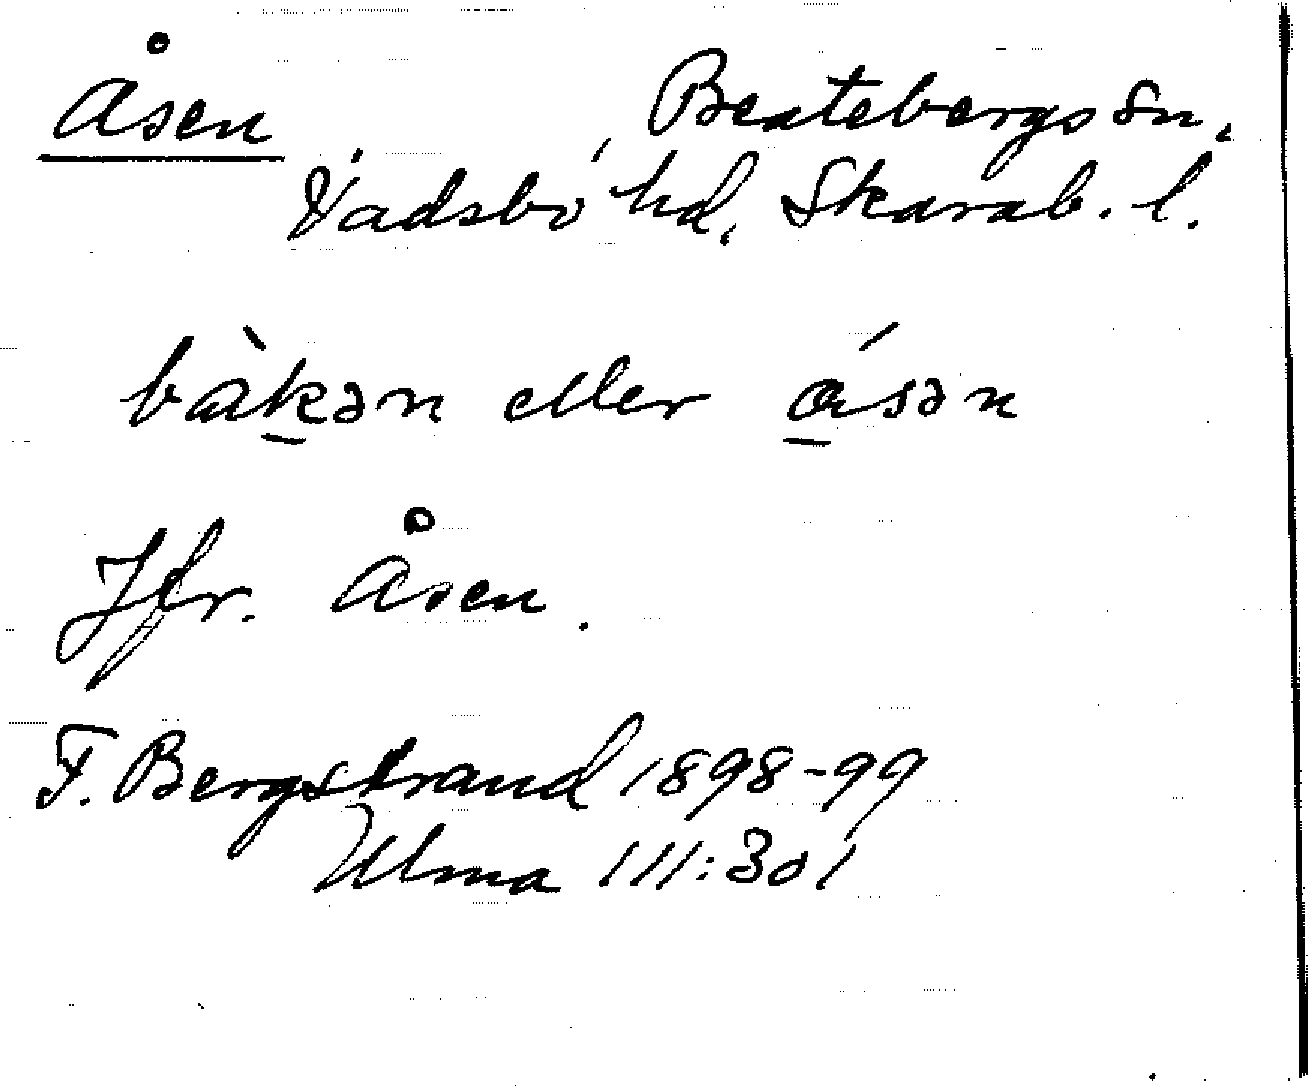 Åsen Beatebergs Sn,
Vadsbo hd, Skarab. l.
bàkən eller ásən
Jfr. Åsen.
F. Bergstrand 1898-99
Ulma 111:301